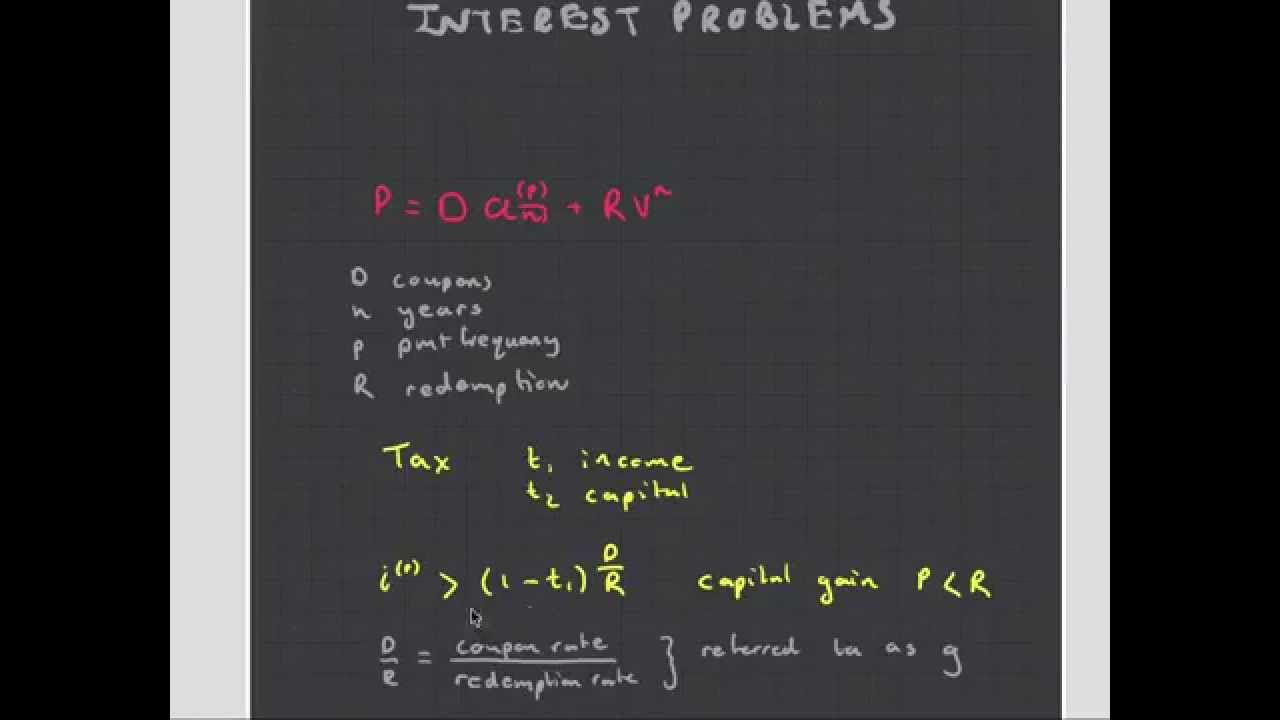 INTEREST PROBLEMS
P = D a n̅|^(p) + R v^n
D coupons
n years
p pmt frequany
R redemption
Tax t₁ income
t₂ capital
i^(p) > (1 - t₁) D/R capital gain P < R
D/R = coupon rate / redemption rate } referred to as g